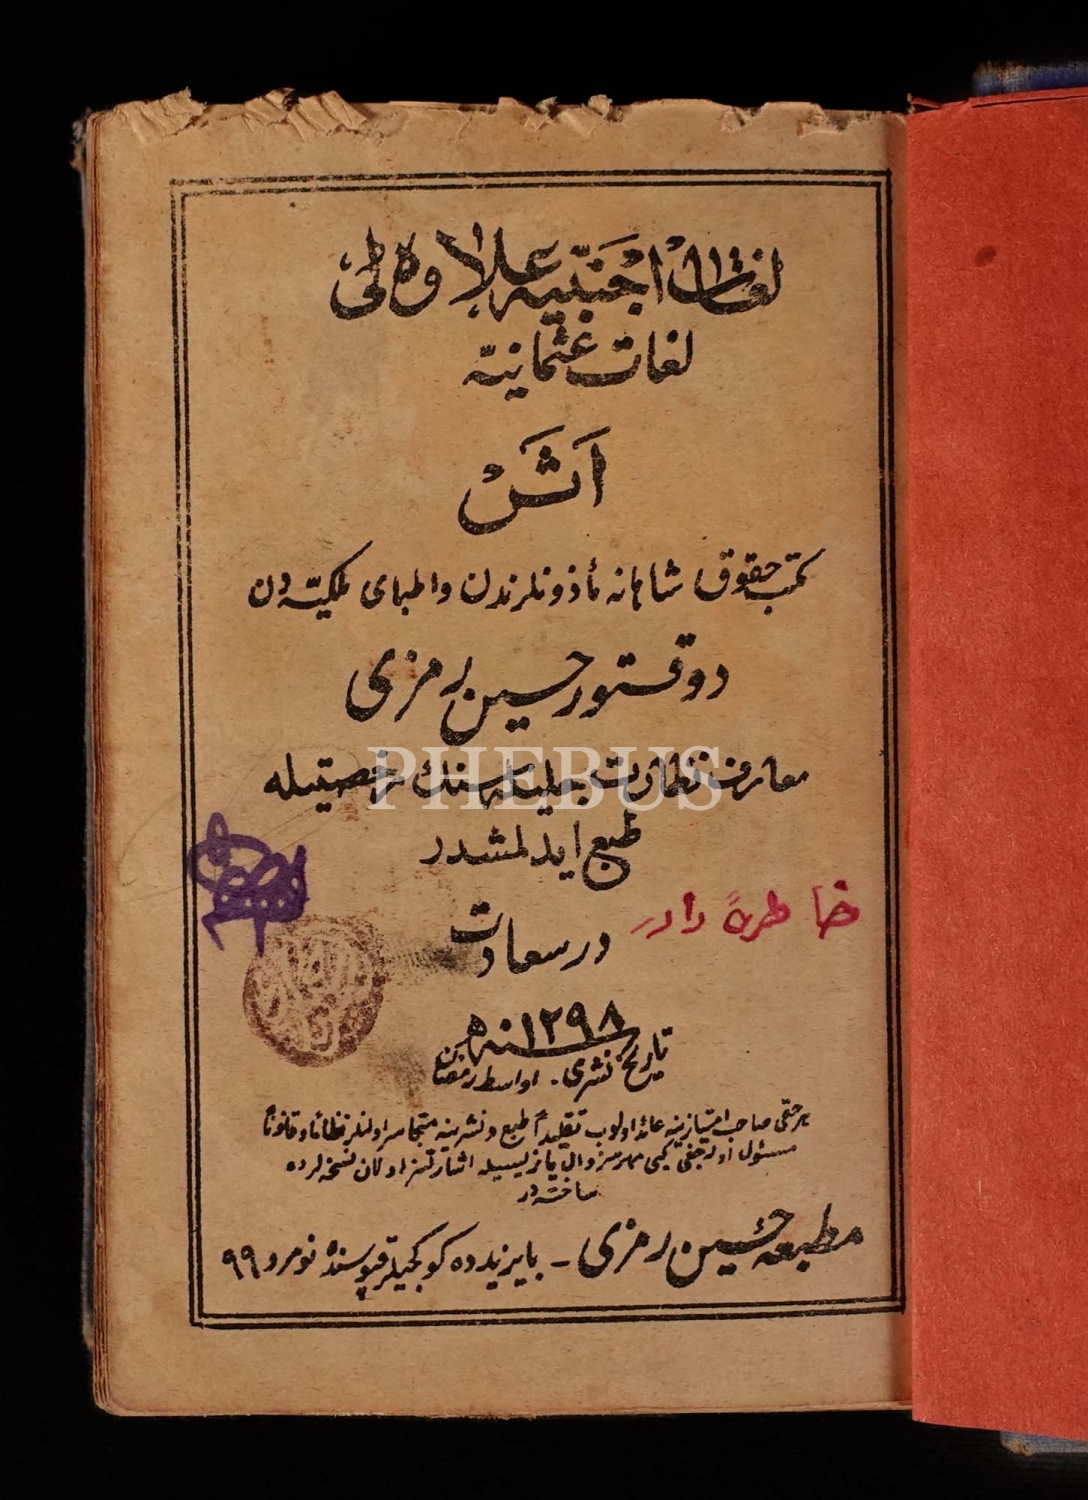 لغات اجنبیه علاوه‌لی
لغات عثمانیه
اثر
مکتب حقوق شاهانه مأذونلرندن واطبای ملکیه‌دن
دوقتور حسین رمزی
PHEBUS
معارف نظارت جلیله‌سنك رخصتیله
طبع ایدلمشدر
خاطرةً دادر
درسعادت
سنه ١٢٩٨
تاریخ نشری. اواسط رمضان
هر حقی صاحب امتیازینه عائد اولوب تقلیداً طبع ونشرینه متجاسر اولنلر نظاماً وقانوناً
مسئول اوله‌جغی کبی مهرسز وال یازیسیله اشارتسز اولان نسخه‌لرده
ساخته‌در
مطبعه حسین رمزی - بایزیدده کوکجیلر قپوسنده نومرو ٩٩